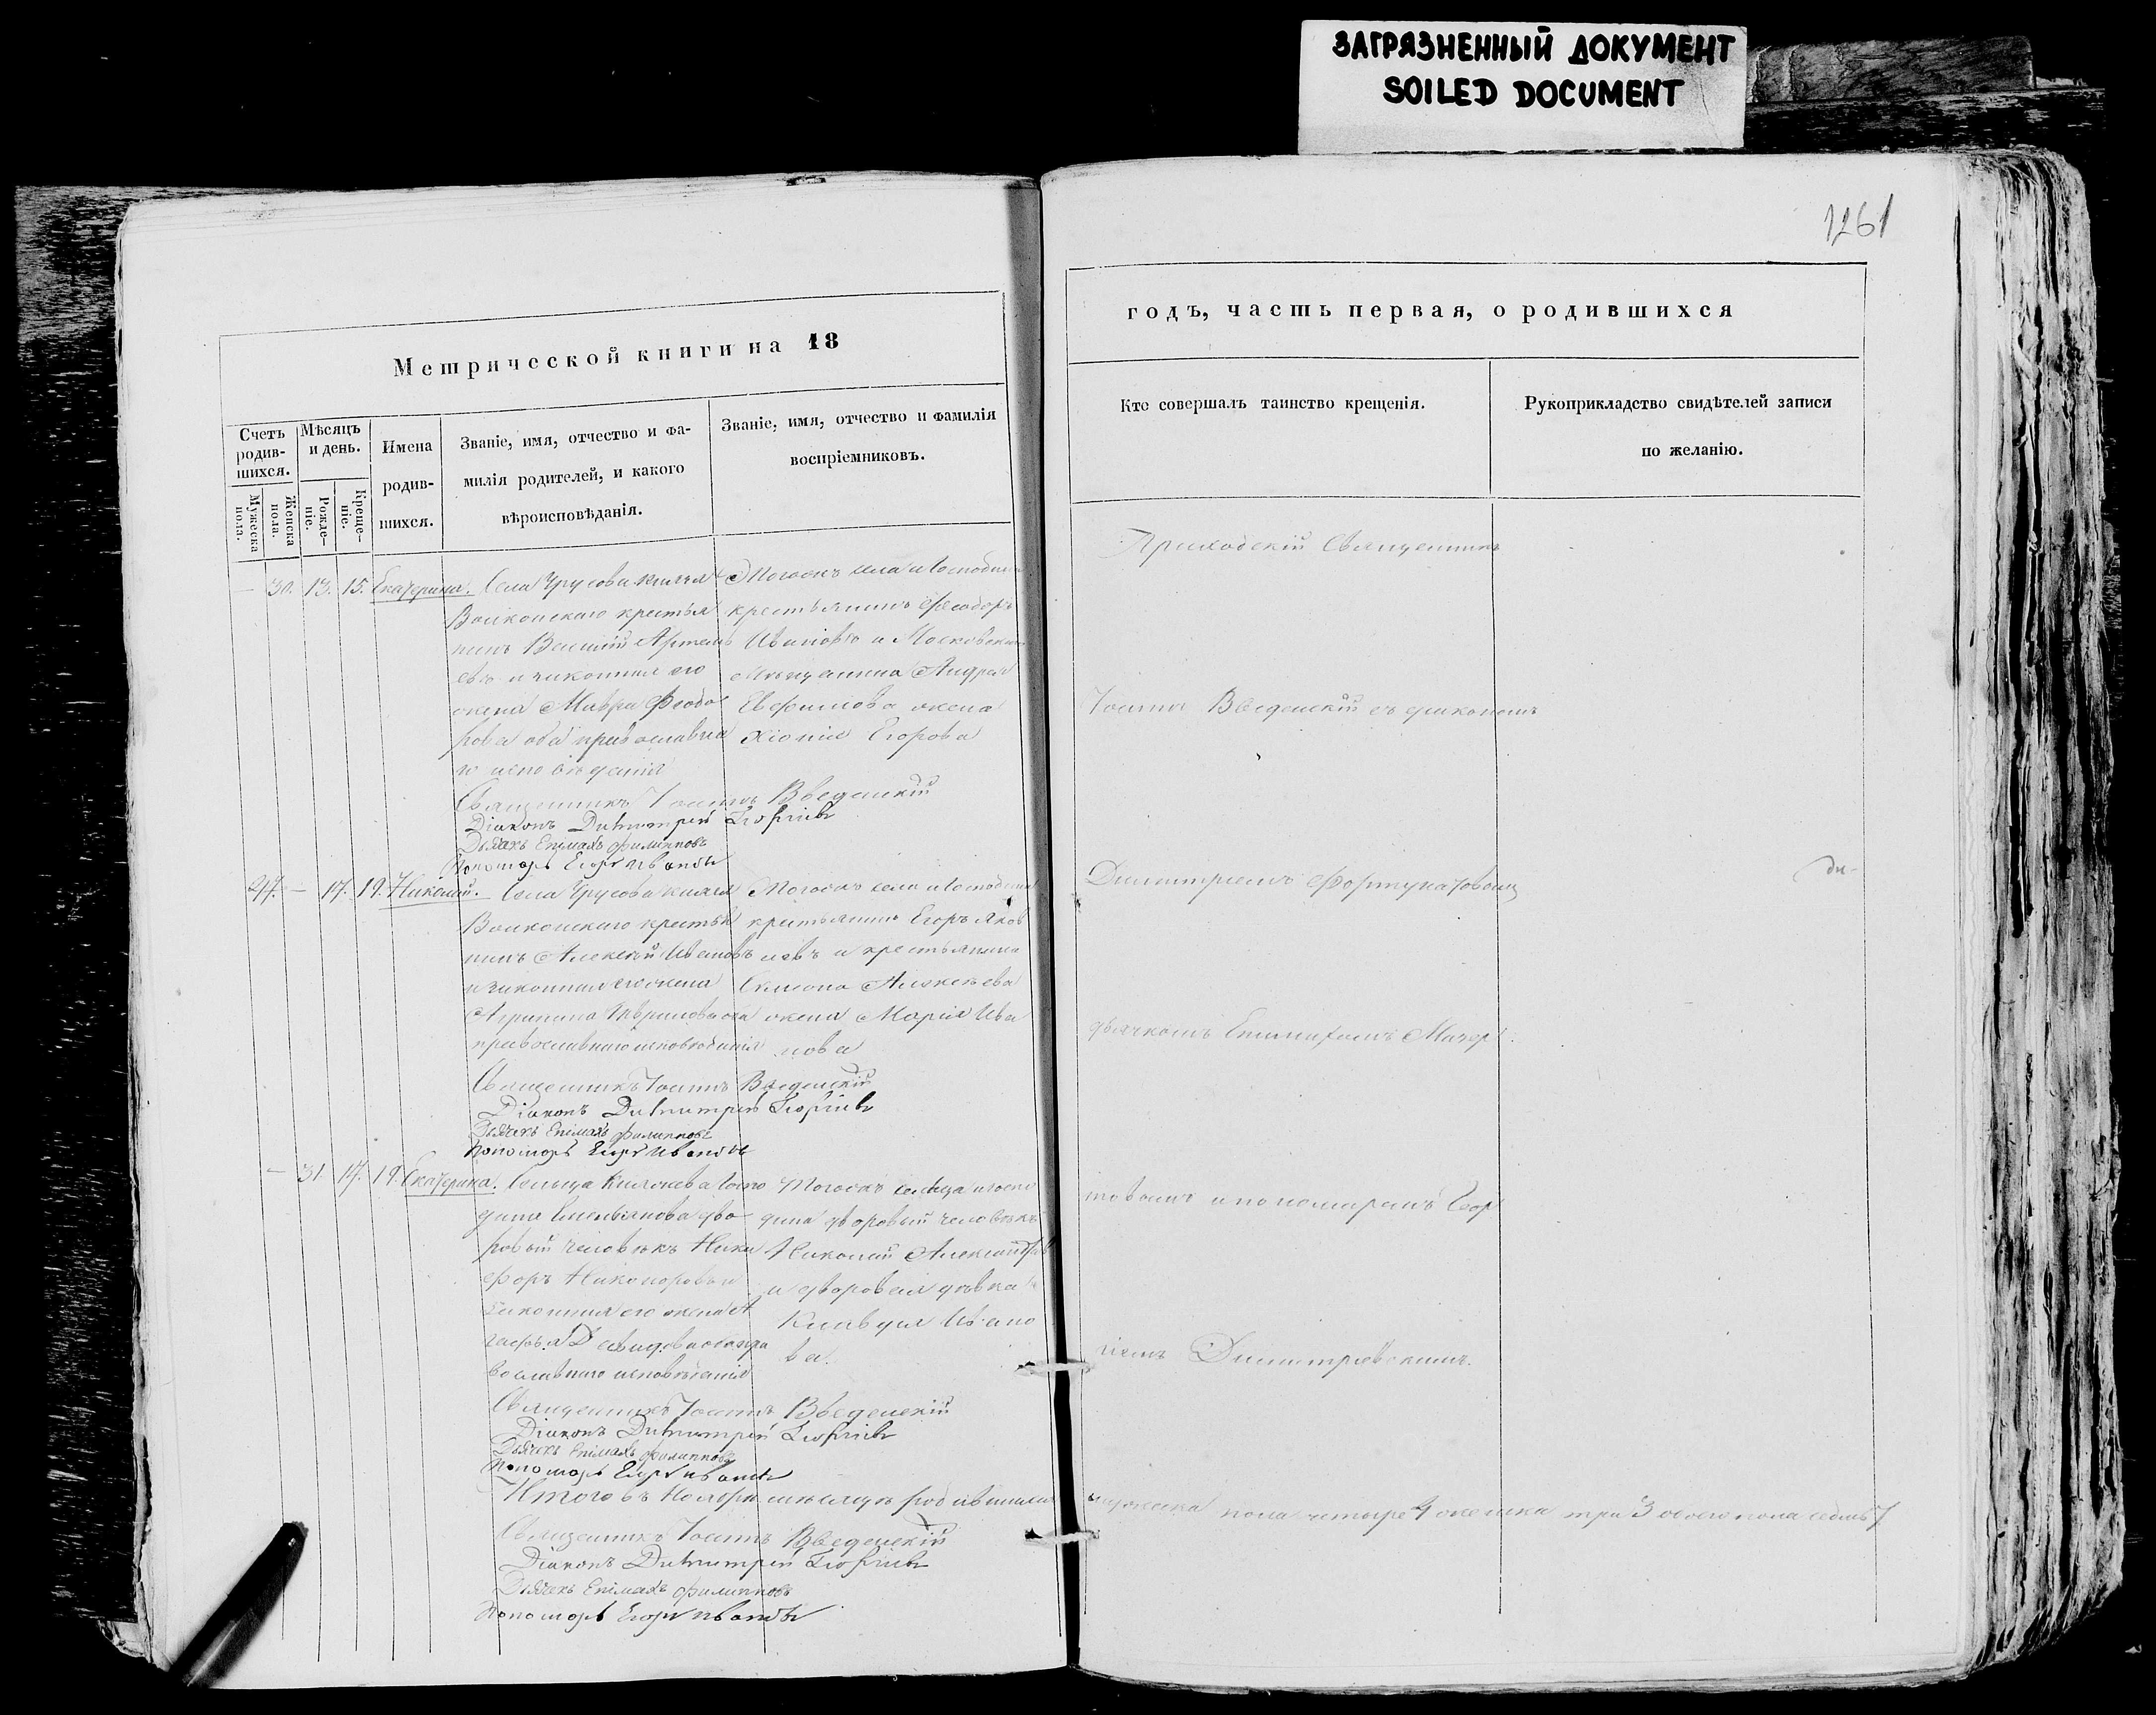 ЗАГРЯЗНЕННЫЙ ДОКУМЕНТ
SOILED DOCUMENT
1261
Метрической книги на 18
Счетъ родив-шихся.
Мужеска пола.
Женска пола.
Мѣсяцъ и день.
Рожде-ніе.
Креще-ніе.
Имена
родив-
шихся.
Званіе, имя, отчество и фа-
милія родителей, и какого
вѣроисповѣданія.
Званіе, имя, отчество и фамилія
воспріемниковъ.
— 30. 13. 15. Екатерина.
Села Урусова князя
Волконскаго крестья
нинъ Василій Артемь
евъ и законная его
жена Мавра Феодо
рова оба православна
го исповѣданія
Тогожъ села и Господина
крестьянинъ Феодоръ
Ивановъ и Московскаго
мѣщанина Андрея
Евфимова жена
Хіонія Егорова
Священникъ Іоаннъ Введенскій
Діаконъ Димитрій
Дьячекъ Епімахъ Филипповъ
Пономарь Егоръ Ивановъ
47. — 17. 19. Николай.
Села Урусова князя
Волконскаго крестья
нинъ Алексѣй Ивановъ
и законная его жена
Агрипина Гаврилова оба
православнаго исповѣданія
Тогожъ села и Господина
крестьянинъ Егоръ Яков
левъ и крестьянина
Симона Алексѣева
жена Марія Ива
нова
Священникъ Іоаннъ Введенскій
Діаконъ Димитрій
Дьячекъ Епімахъ Филипповъ
Пономарь Егоръ Ивановъ
— 31. 17. 19. Екатерина.
Сельца Госпо
дина Емельянова дво
ровый человѣкъ Ники
форъ и
законная его жена А
гафья Давидова оба пра
вославнаго исповѣданія
Тогожъ сельца и госпо
дина дворовый человѣкъ
Николай Александровъ
и дворовая дѣвка
Клавдія Ивано
ва.
Священникъ Іоаннъ Введенскій
Діаконъ Димитрій
Дьячекъ Епімахъ Филипповъ
Пономарь Егоръ Ивановъ
Итого въ Ноябрѣ мѣсяцѣ родившихся
Священникъ Іоаннъ Введенскій
Діаконъ Димитрій
Дьячекъ Епімахъ Филипповъ
Пономарь Егоръ Ивановъ
годъ, часть первая, о родившихся
Кто совершалъ таинство крещенія.
Рукоприкладство свидѣтелей записи
по желанію.
Приходскій Священникъ
Іоаннъ Введенскій съ діакономъ
Димитріемъ Фортунатовымъ
ди-
дьячкомъ Епимахомъ
и пономаремъ Геор
гіемъ Димитревскимъ.
мужеска пола четыре 4 женска три 3 обоего пола седмь 7